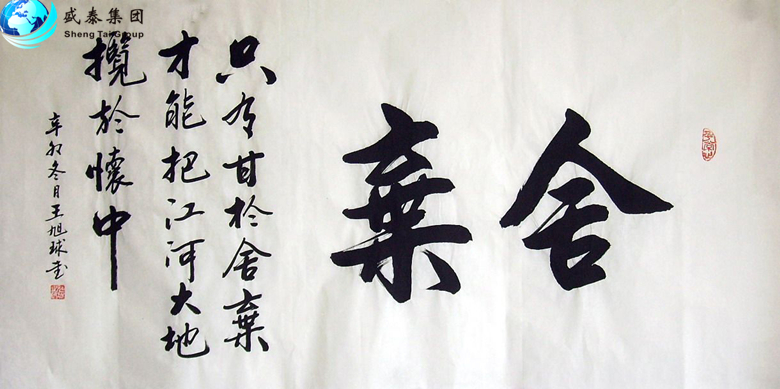 盛泰集团
Sheng Tai Group
舍棄
只有甘於舍棄
才能把江河大地
攬於懷中
辛卯冬月王旭球書